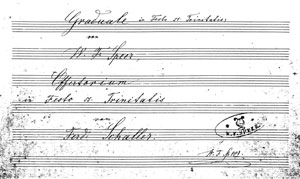 Graduale in Festo S. Trinitatis
von
W. F. Speer,
Offertorium
in Festo S. Trinitatis
von
Ferd. Schaller.